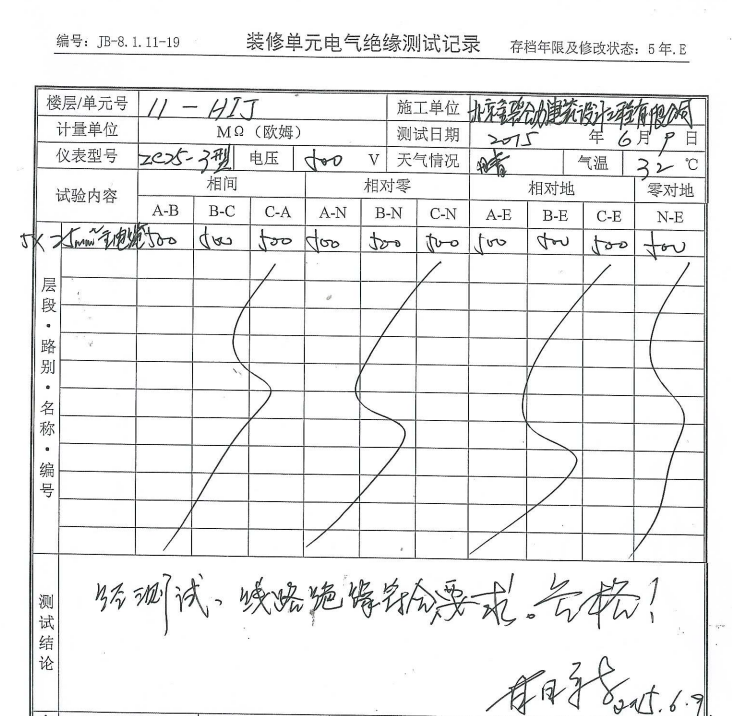 编号：JB-8.1.11-19 装修单元电气绝缘测试记录 存档年限及修改状态：5年.E
楼层/单元号 11-HIJ 施工单位 北京 建筑设计工程有限公司
计量单位 MΩ（欧姆） 测试日期 2015 年 6 月 9 日
仪表型号 ZC25-3型 电压 500 V 天气情况 晴 气温 32 ℃
试验内容 相间 相对零 相对地 零对地
A-B B-C C-A A-N B-N C-N A-E B-E C-E N-E
5X25mm² 电缆 500 500 500 500 500 500 500 500 500 500
层段·路别·名称·编号
测试结论
经测试、线路绝缘符合要求。合格！
2015.6.9